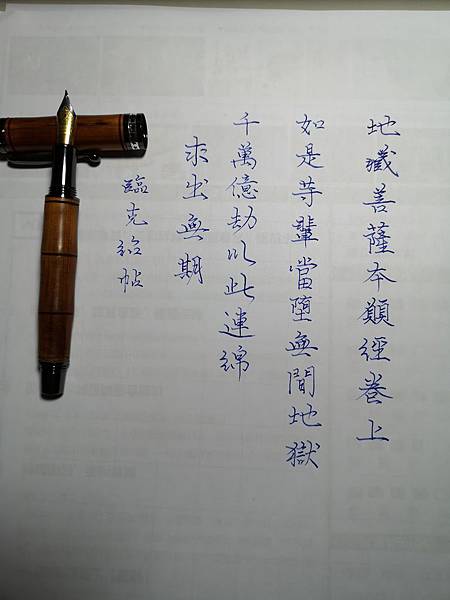 地藏菩薩本願經卷上
如是等輩當墮無間地獄
千萬億劫以此連綿
求出無期
臨克紹帖